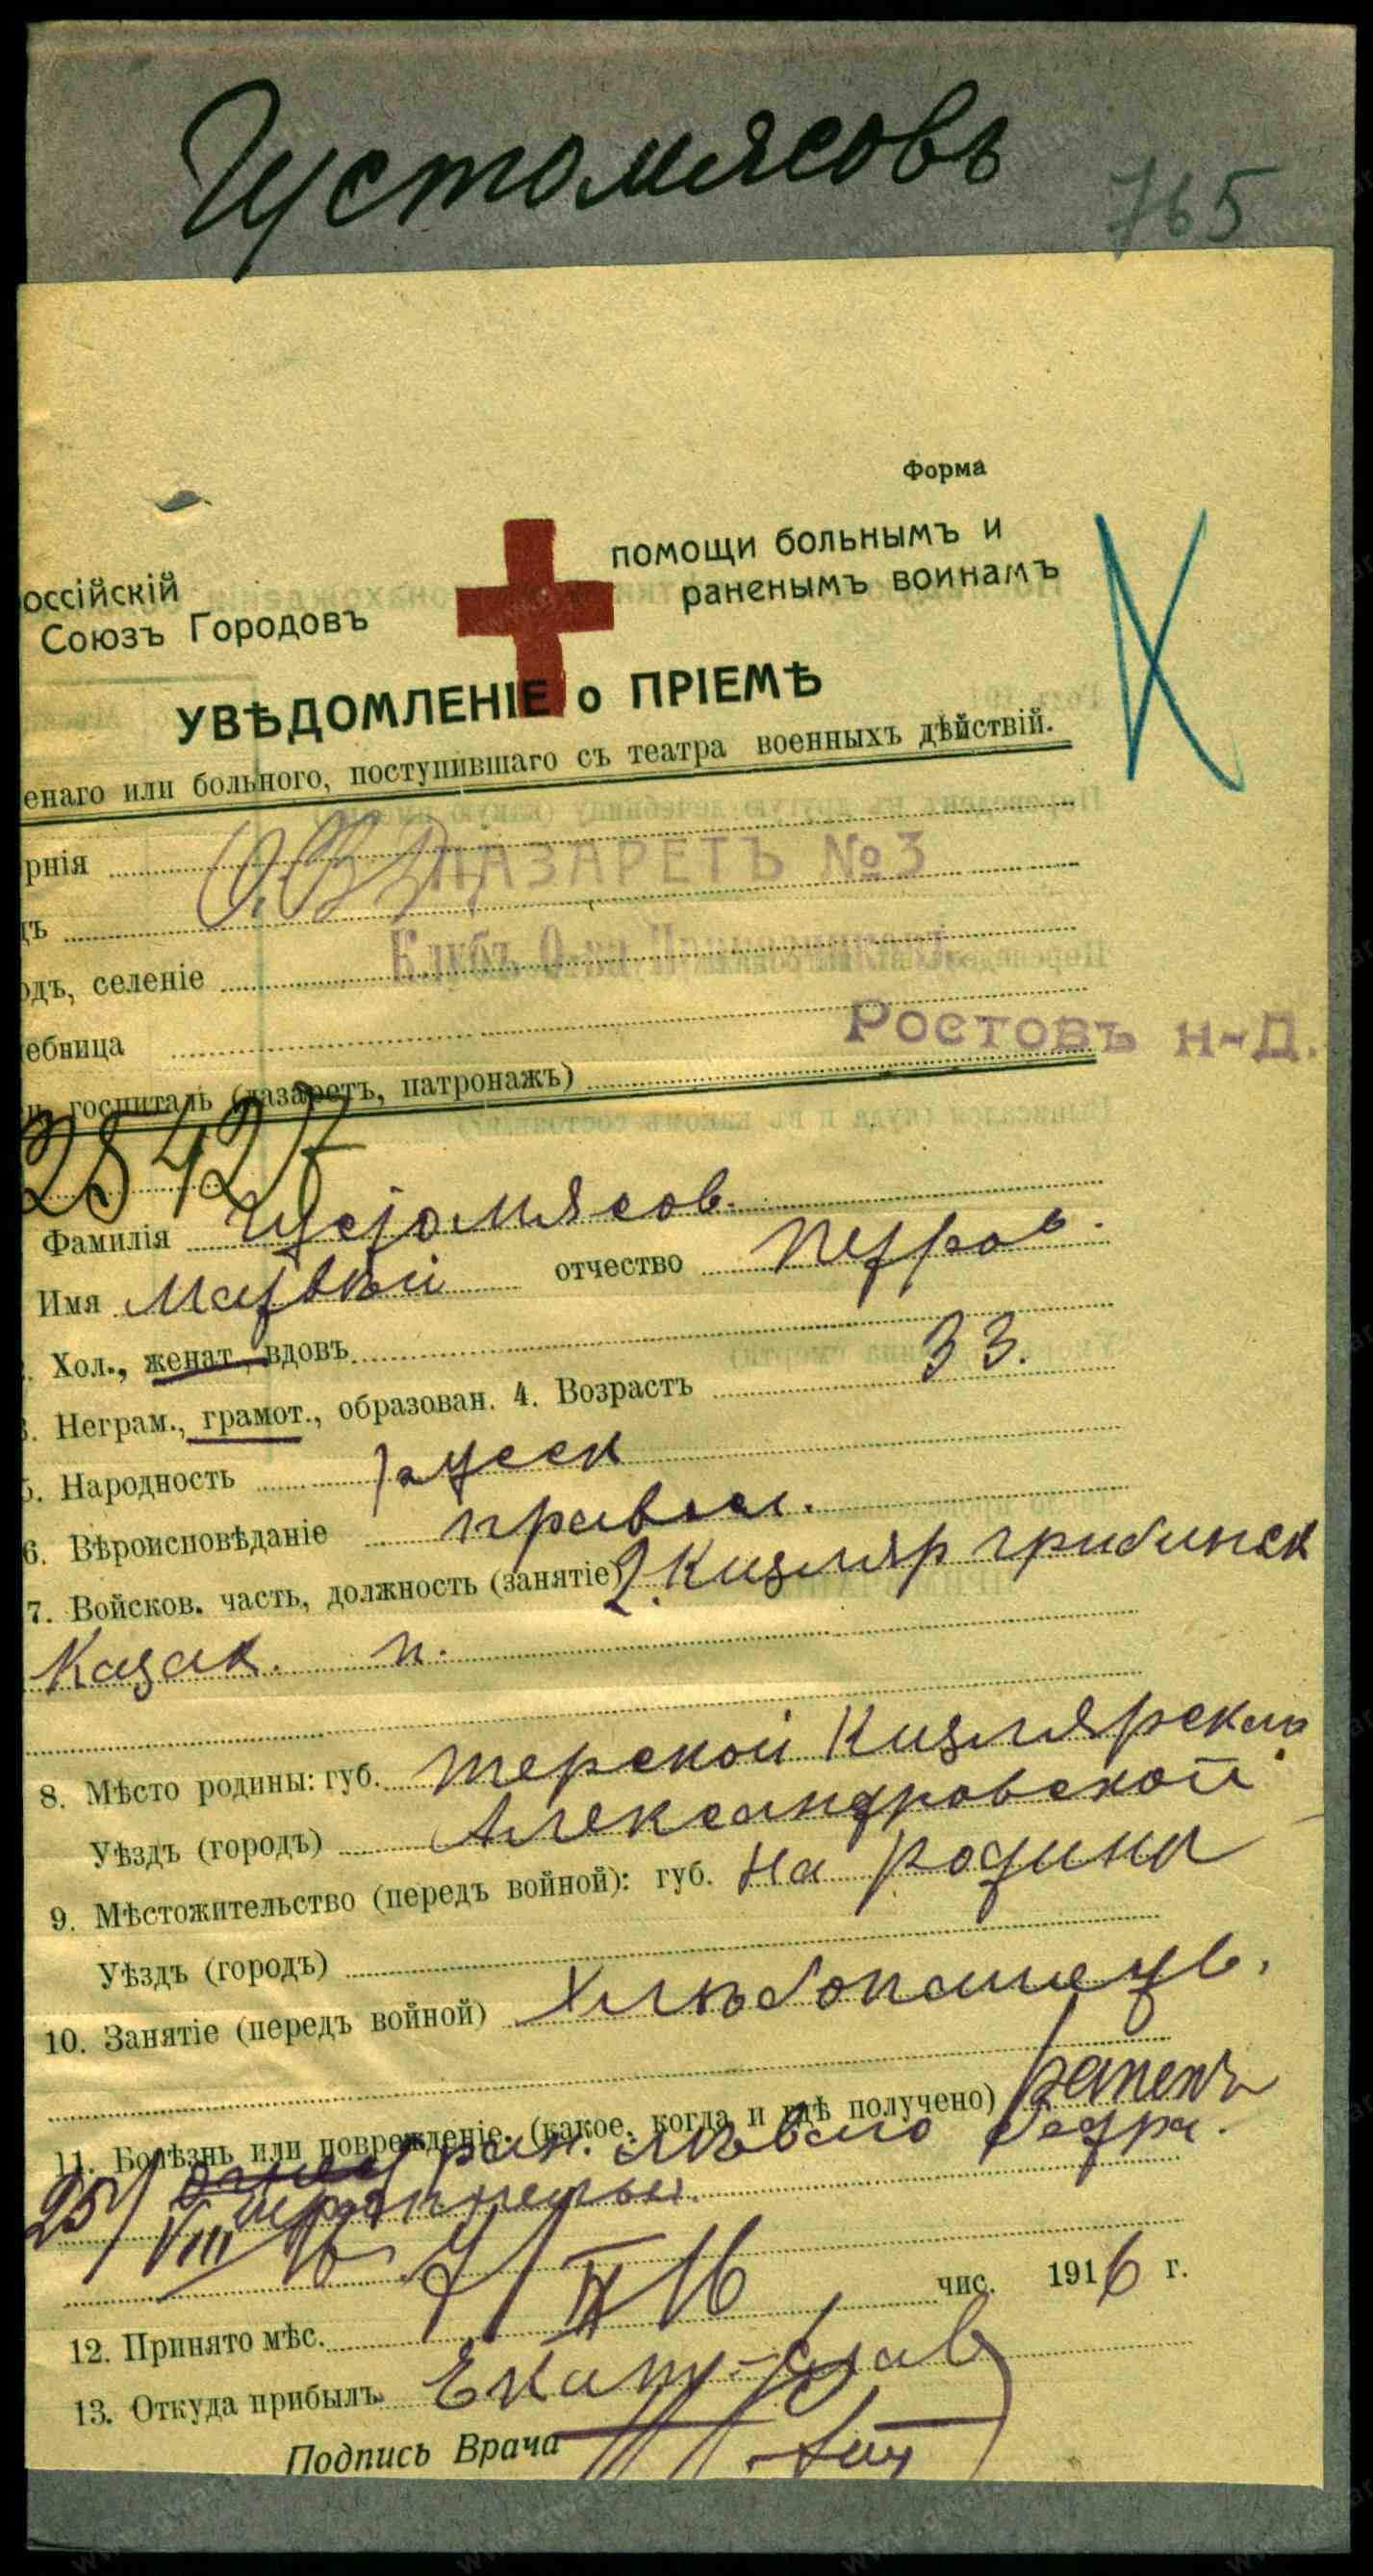 Густомясовъ
765
Форма
оссійскій
Союзъ Городовъ
помощи больнымъ и
раненымъ воинамъ
УВѢДОМЛЕНІЕ о ПРІЕМѢ
енаго или больного, поступившаго съ театра военныхъ дѣйствій.
рнія
ЛАЗАРЕТЪ №3
дъ
Клубъ О-ва
одъ, селеніе
ебница
Ростовъ н-Д.
госпиталь (лазаретъ, патронажъ)
28427
Фамилія Густомясов.
Имя Матвѣй отчество Петров.
Хол., женат., вдовъ
3. Неграм., грамот., образован. 4. Возрастъ 33.
5. Народность русск
6. Вѣроисповѣданіе правосл.
7. Войсков. часть, должность (занятіе) 2. Кизляр гребинск
Казак. п.
8. Мѣсто родины: губ. Терской Кизлярскаго
Уѣздъ (городъ) Александровской
9. Мѣстожительство (передъ войной): губ. На родина
Уѣздъ (городъ)
10. Занятіе (передъ войной) Хлѣбопашец.
11. Болѣзнь или поврежденіе. (какое, когда и гдѣ получено) ранен
ран. лѣваго бедра.
25/VIII 16
12. Принято мѣс. 4/IX 16 чис. 1916 г.
13. Откуда прибылъ Екат-слав
Подпись Врача